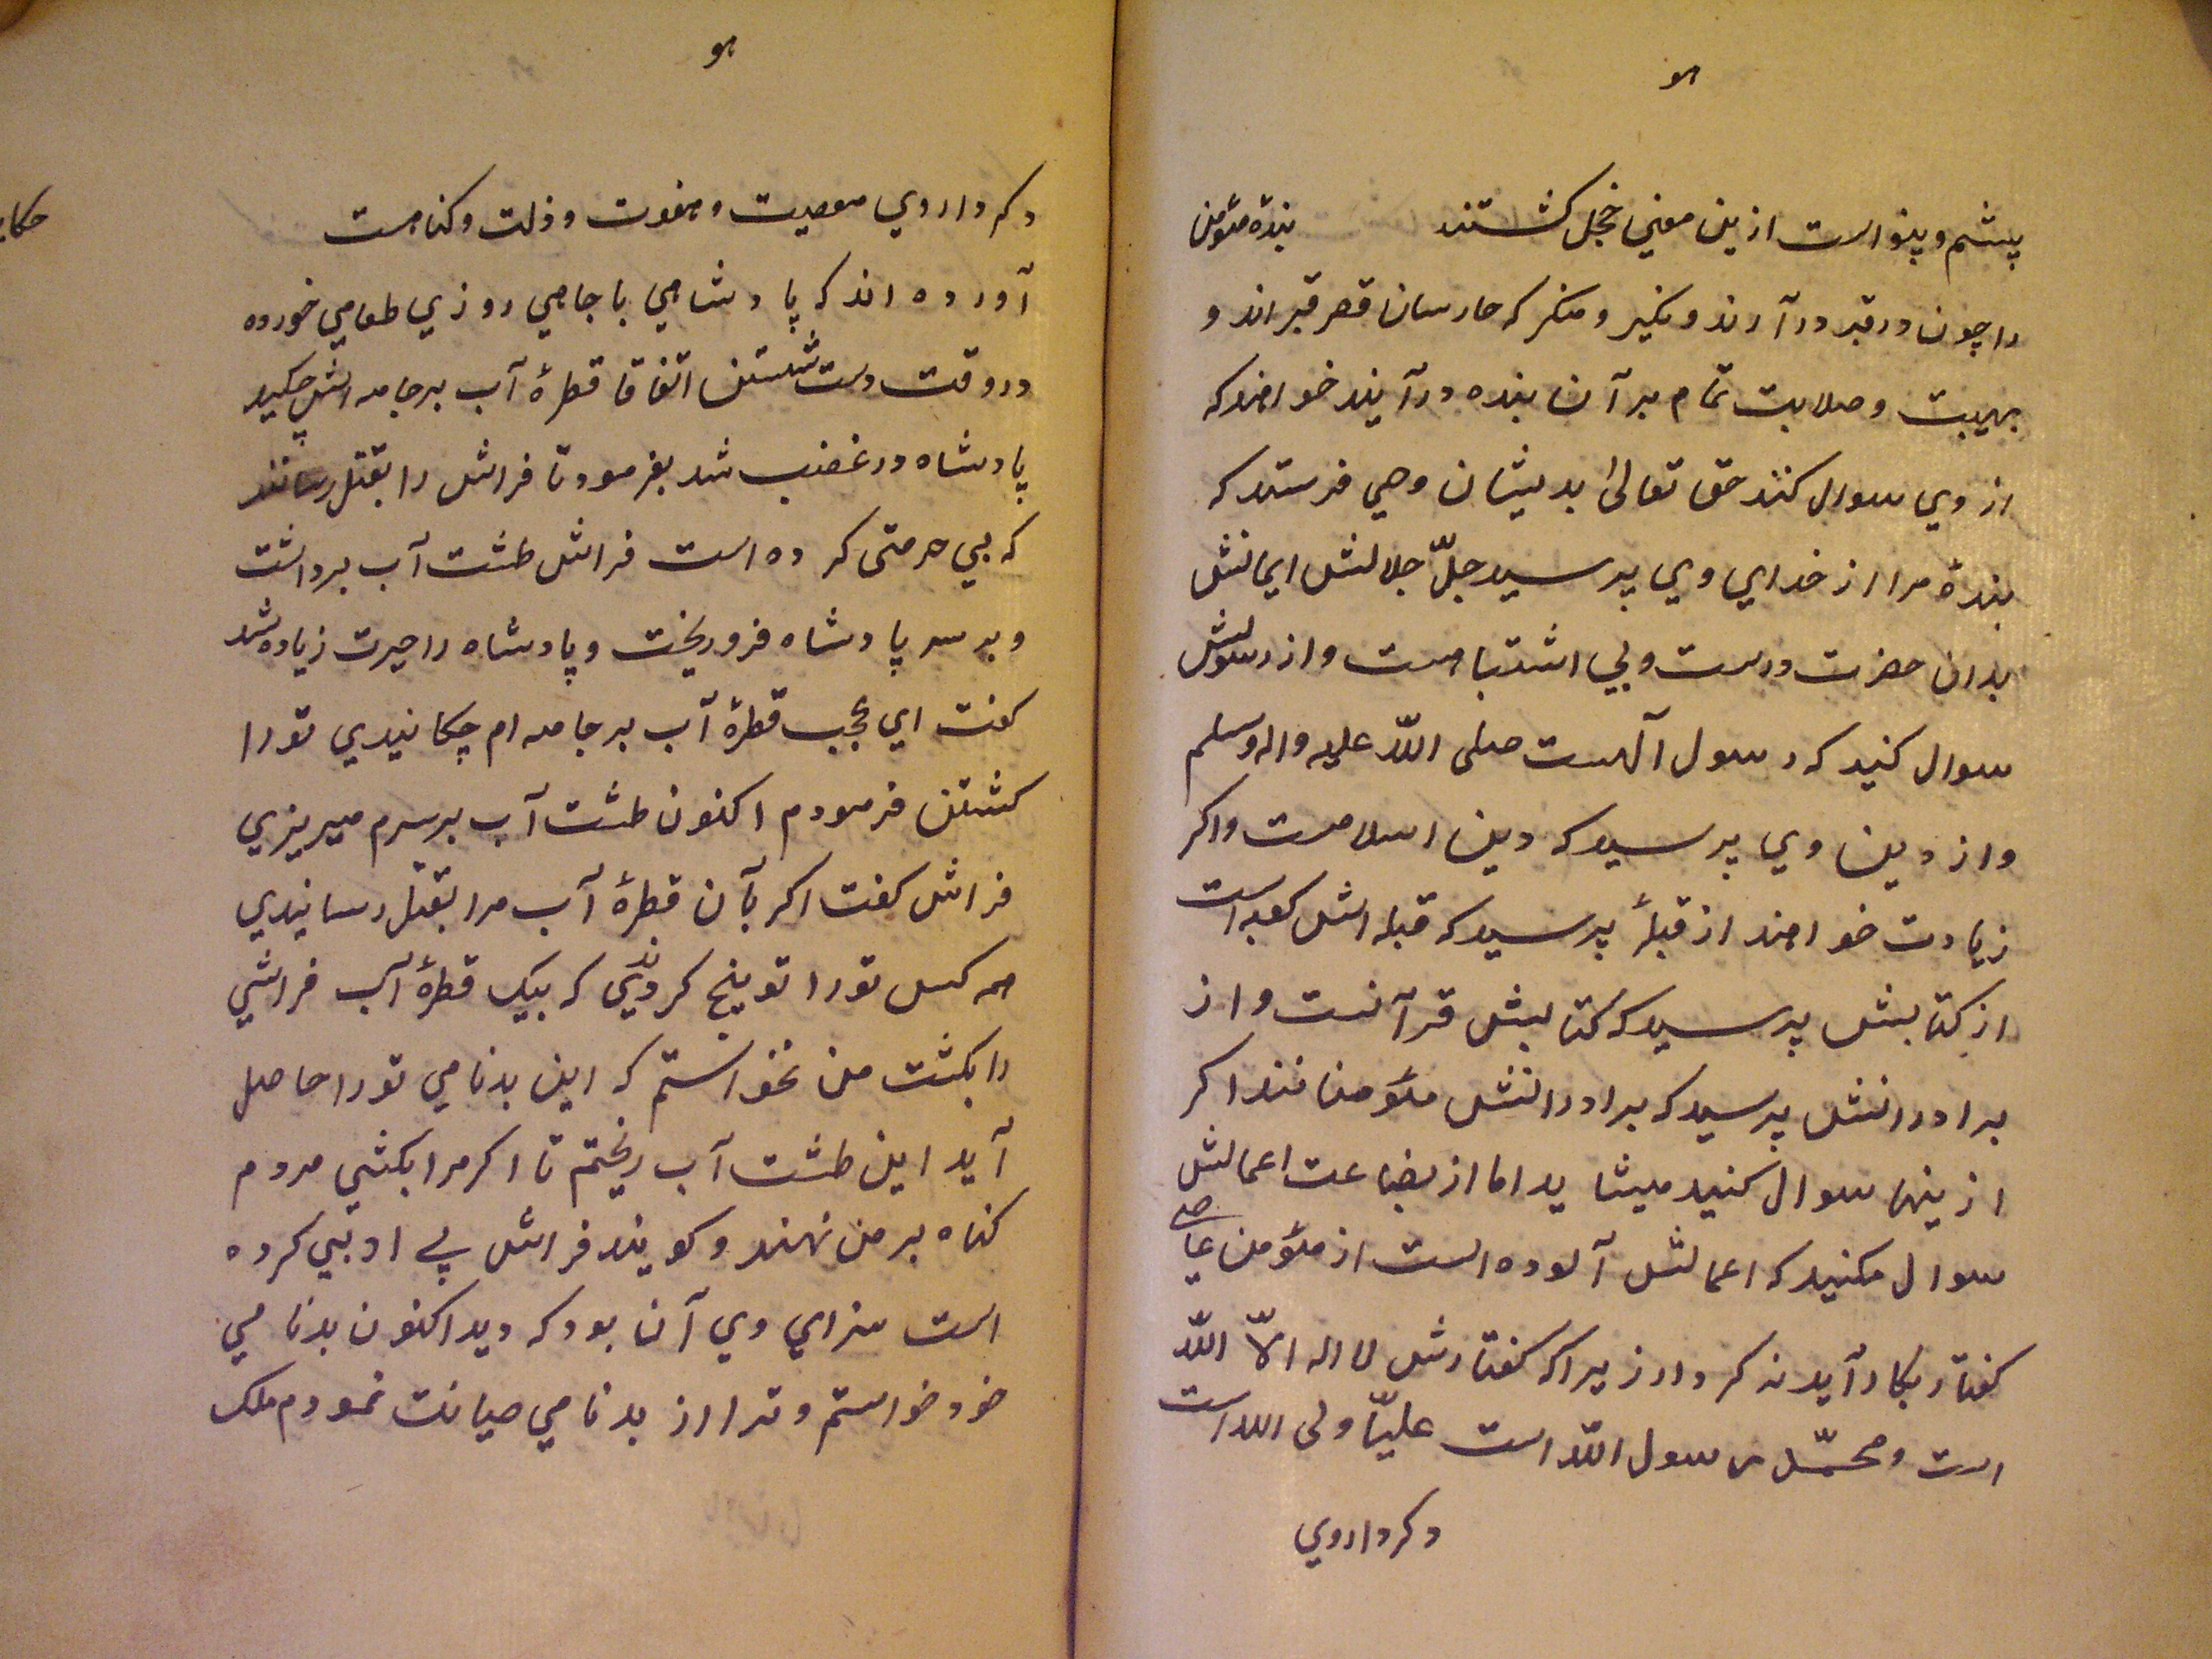 هو
پیشم و بنواست ازین معنی خجل گشتند بندهٔ مؤمن
را چون در قبر در آرند و نکیر و منکر که حارسان قصر قبراند و
بهیبت و صلابت تمام بر آن بنده در آیند خواهند که
از وي سوال کنند حق تعالی بدیشان وحي فرستد که
بندهٔ مرا از خداي وي پرسید جلّ جلالش ایمانش
بدان حضرت درست و بي اشتباهست و از رسولش
سوال کنید که رسول آلهست صلی اللّه علیه واله وسلم
و از دین وي پرسید که دین اسلامست و اکر
زیادت خواهند از قبلهٔ پرسید که قبله اش کعبه است
از کتابش پرسید که کتابش قرآنست و از
برادرانش پرسید که برادرانش مؤمنانند اکر
ازینها سوال کنید میشاید اما از بضاعت اعمالش
سوال مکنید که اعمالش آلوده است از مؤمن عاصي
کفتار بکار آید نه کردار زیرا که کفتارش لا اله الاّ اللّه
است و محمّد رسول اللّه است علیّا ولی الله است
و کردار وي
هو
و کردار وي معصیت و هفوت و ذلت و کناهست
حکا
آورده اند که پادشاهي با جاهي روزي طعامي خورده
در وقت دست شستن اتفاقا قطرهٔ آب بر جامه اش چکید
پادشاه در غضب شد بفرمود تا فراش را بقتل رسانند
که بي حرمتی کرده است فراش طشت آب برداشت
و بر سر پادشاه فرو ریخت و پادشاه را حیرت زیاده شد
کفت اي عجب قطرهٔ آب بر جامه ام چکانیدي تو را
کشتن فرمودم اکنون طشت آب بر سرم میریزي
فراش کفت اکر بآن قطرهٔ آب مرا بقتل رسانیدي
همه کس تو را توبیخ کردندي که بیک قطرهٔ آب فراشي
را بکشت من نخواستم که این بدنامي تو را حاصل
آید این طشت آب ریختم تا اکر مرا بکشي مردم
کناه بر من نهند و کویند فراش بے ادبي کرده
است سزاي وي آن بود که دید اکنون بدنامي
خود خواستم و ترا از بدنامي صیانت نمودم ملک